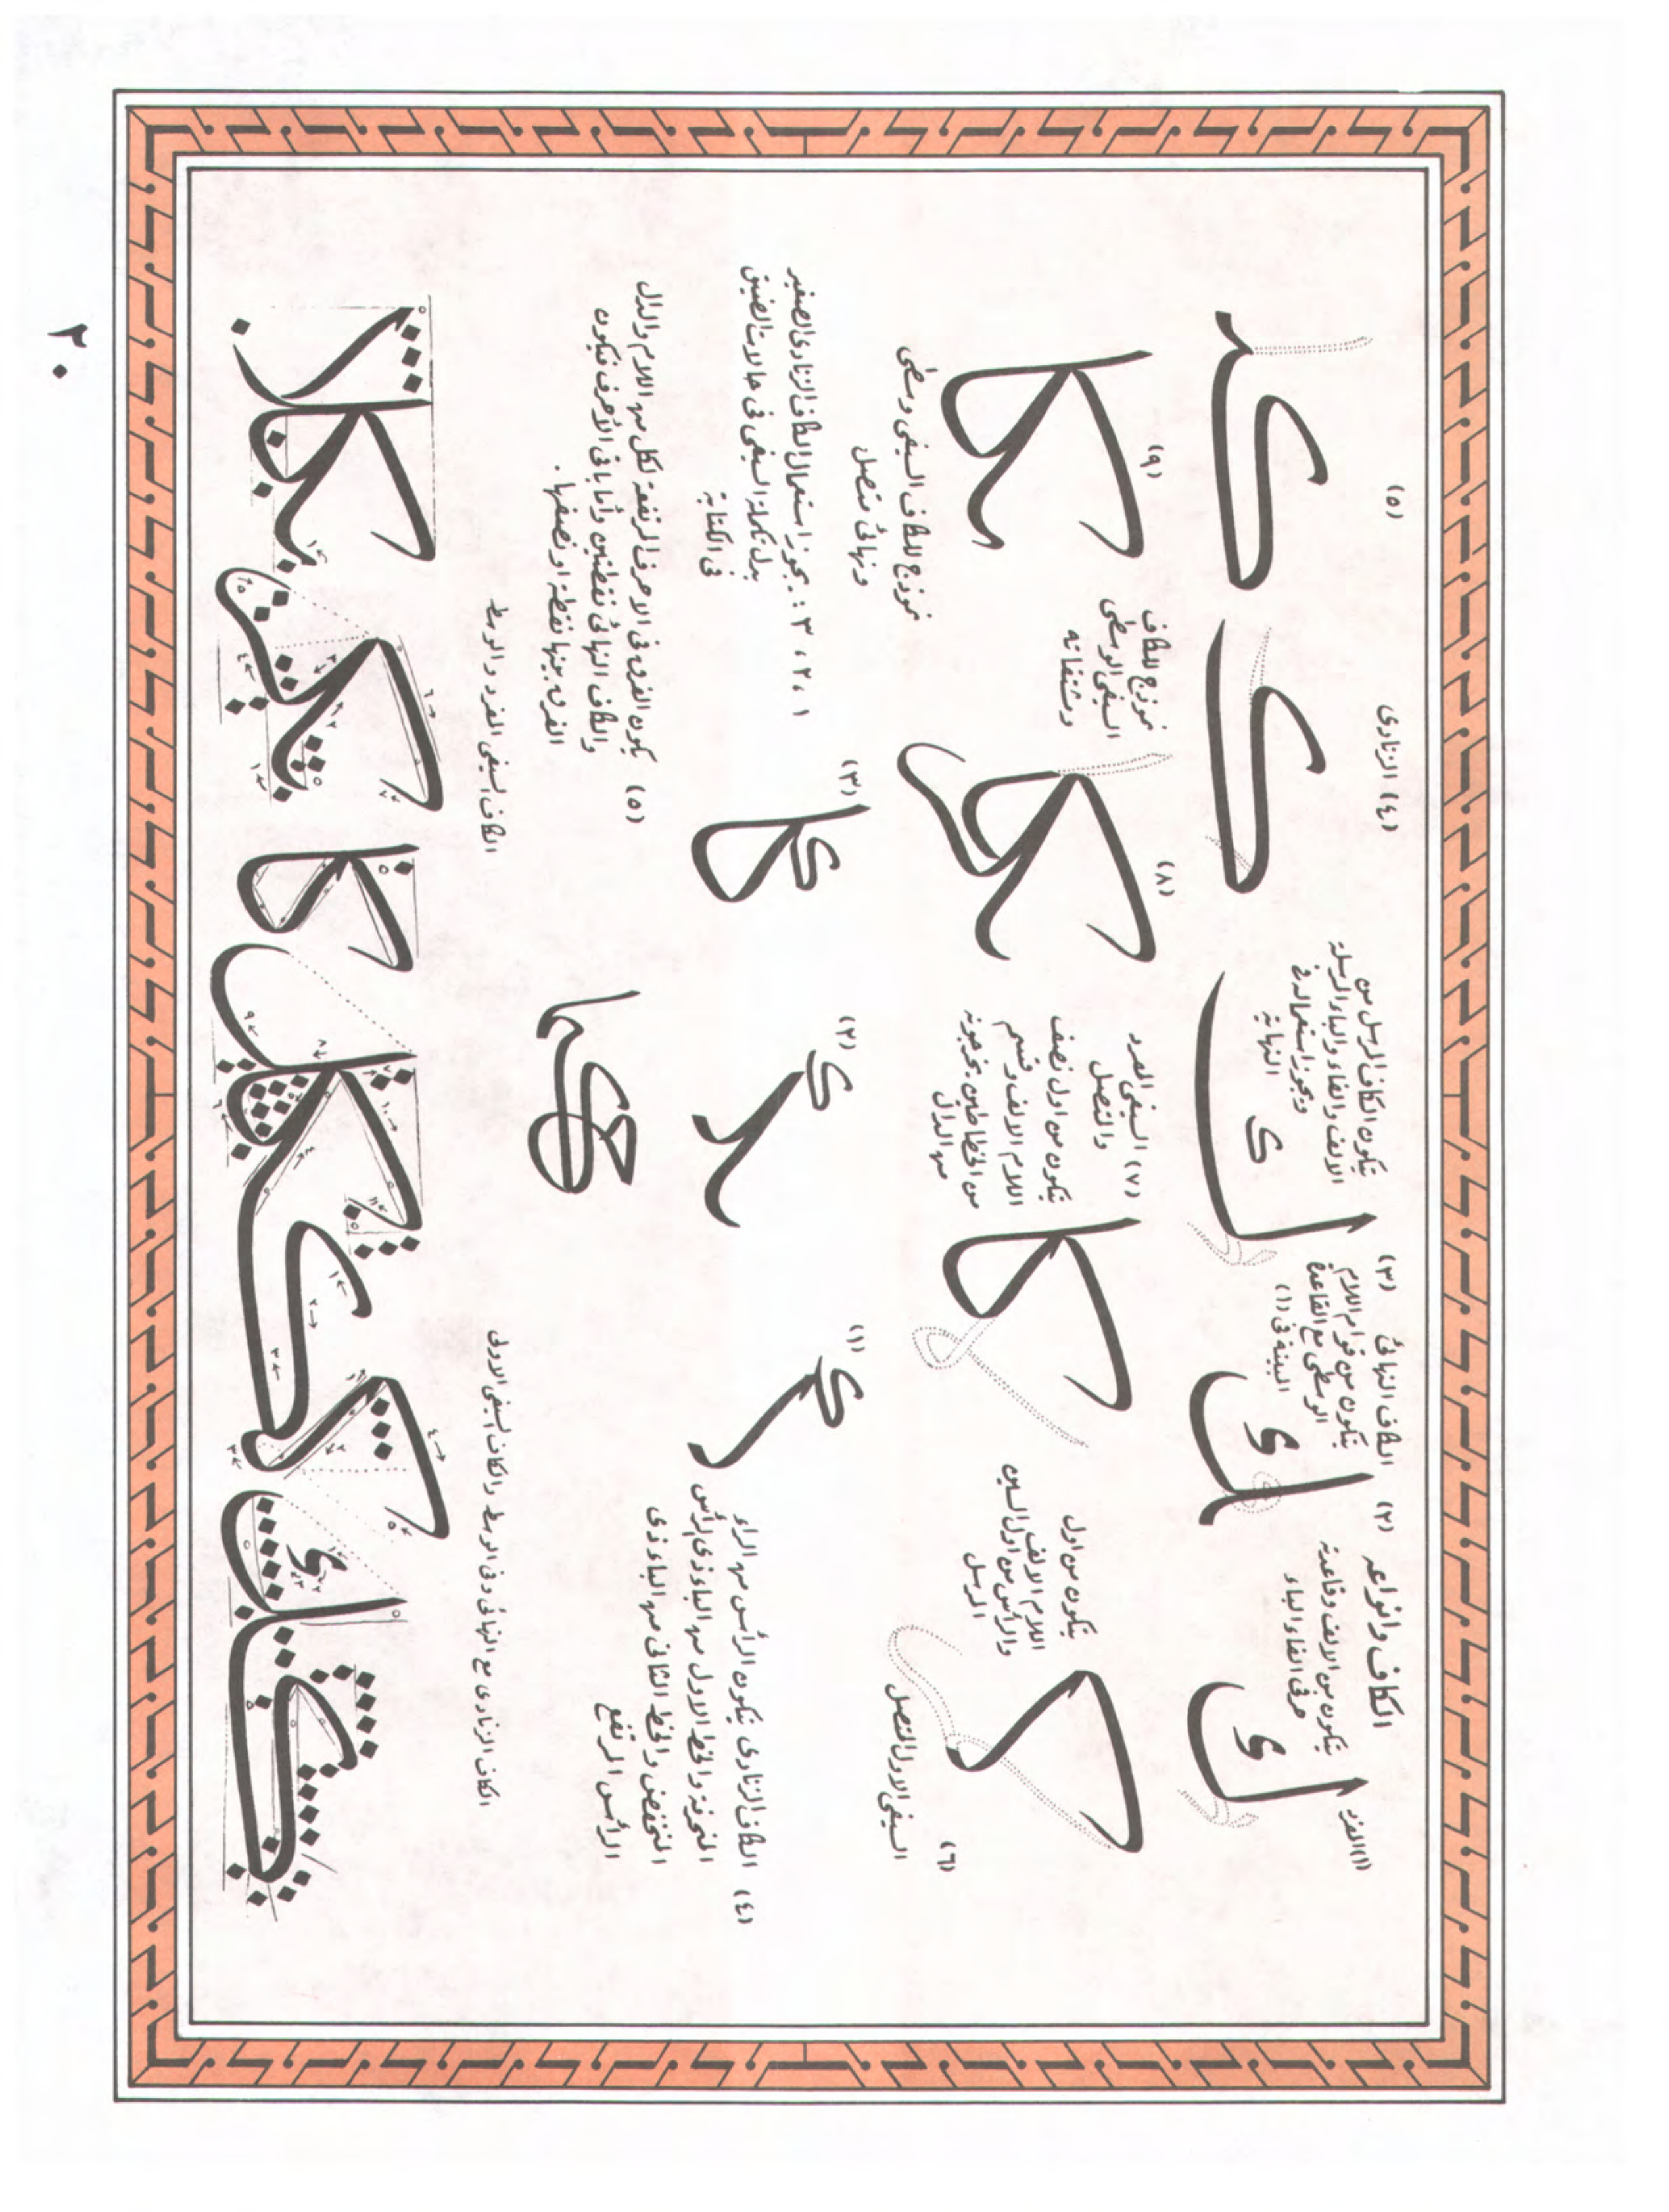 الكاف وانواعه
(١) المفرد
يتكون من الالف وقاعدة
حرفى الفاء والباء
(٢) الكاف النهائى
يتكون من قوام اللام
الوسطى مع القاعدة
المبينة فى (١)
(٣)
يتكون الكاف المرسل من
الالف والفاء والباء المرسلة
ويجوز استعماله فى
النهاية
(٤) الزنادى
(٥)
(٦)
السيفى الاول المتصل
يتكون من اول
اللام الالف
والرأس من اول السين
المرسل
(٧) السيفى المفرد
والمتصل
يتكون من اول نصف
اللام الالف وقسم
من الخطاطين يخرجونه
من الدال
(٨)
نموذج للكاف
السيفى الوسطى
ومشتقاته
(٩)
نموذج للكاف السيفى وسطى
ونهائى متصل
(٤) الكاف الزنادى يتكون الرأس من الراء
المنحرفة والخط الاول من الباء ذى الرأس
المنخفض والخط الثانى من الباء ذى
الرأس المرتفع
(١)
(٢)
(٣)
١ ، ٢ ، ٣ : يجوز استعمال الكاف الزنادى الصغير
بدل تكملة السيفى فى حالات الضيق
فى الكتابة
(٥) يكون الفرق فى الاحرف المرتفعة لكل من اللام والدال
والكاف النهائى نقطتين وأما باقى الأحرف فيكون
الفرق بينها نقطة او نصفها .
الكاف الزنادى مع النهائى وفى الوسط والكاف السيفى الاولى
الكاف السيفى المفرد والوسط
٢٠